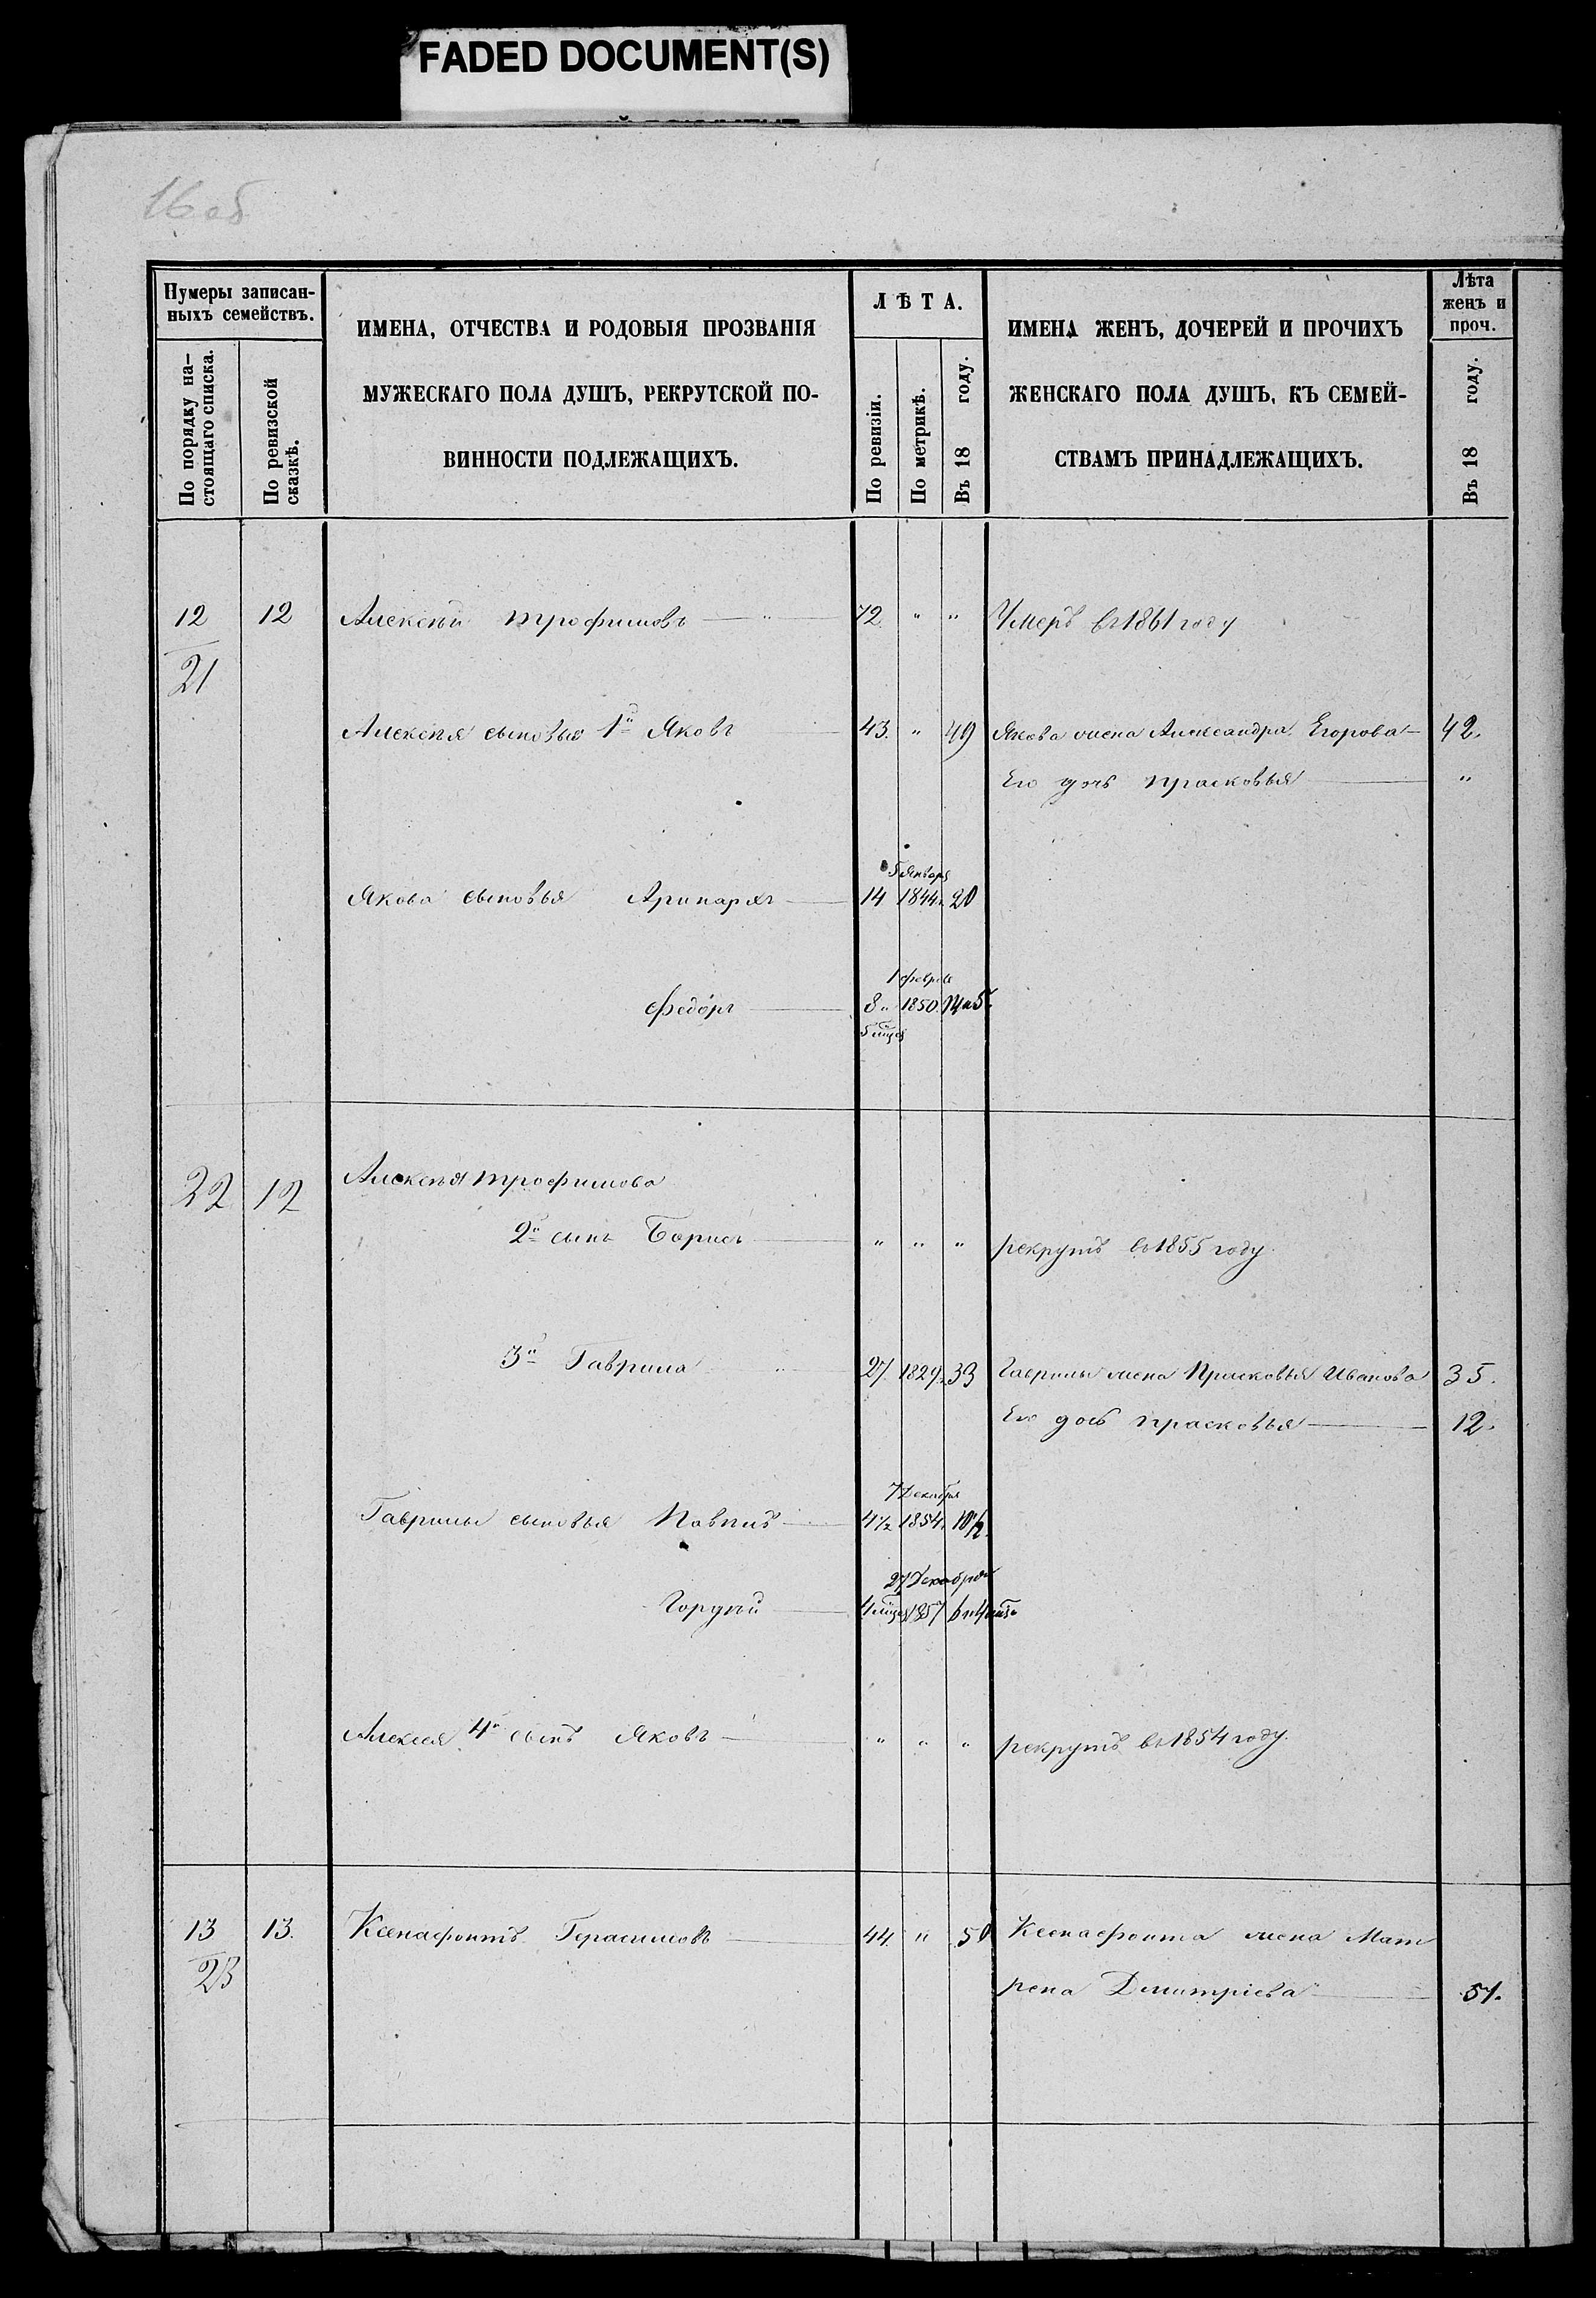 FADED DOCUMENT(S)
16 об
Нумеры записан-
ныхъ семействъ.
По порядку на-
стоящаго списка.
По ревизской
сказкѣ.
ИМЕНА, ОТЧЕСТВА И РОДОВЫЯ ПРОЗВАНІЯ
МУЖЕСКАГО ПОЛА ДУШЪ, РЕКРУТСКОЙ ПО-
ВИННОСТИ ПОДЛЕЖАЩИХЪ.
ЛѢТА.
По ревизіи.
По метрикѣ.
Въ 18 году.
ИМЕНА ЖЕНЪ, ДОЧЕРЕЙ И ПРОЧИХЪ
ЖЕНСКАГО ПОЛА ДУШЪ, КЪ СЕМЕЙ-
СТВАМЪ ПРИНАДЛЕЖАЩИХЪ.
Лѣта
женъ и
проч.
Въ 18 году.
12 12 Алексѣй Трофимовъ — " — 72. " " Умеръ въ 1861 году
21
Алексѣя сыновья 1й Яковъ — 43. " 49 Якова жена Александра Егорова — 42.
Его дочь Прасковья — "
5 Января
Якова сыновья Аринархъ — 14 1844. 20
1 февра
Федоръ — 8 " 1850. 14 и 5
5 мѣся
22 12 Алексѣя Трофимова
2й сынъ Борисъ — " " " рекрутъ въ 1855 году.
3й Гаврила — 27. 1829. 33 Гаврилы жена Прасковья Иванова 35.
Его дочь Прасковья — 12.
7 Декабря
Гаврилы сыновья Павелъ — 4½ 1854. 10½.
27 Декабря
Гордѣй — 4 мѣся 1857 6 и 4 мѣс.
Алексѣя 4й сынъ Яковъ — " " " рекрутъ въ 1854 году.
13 13. Ксенафонтъ Герасимовъ — 44. " 50 Ксенафонта жена Мат
23
рена Дмитріева — 51.